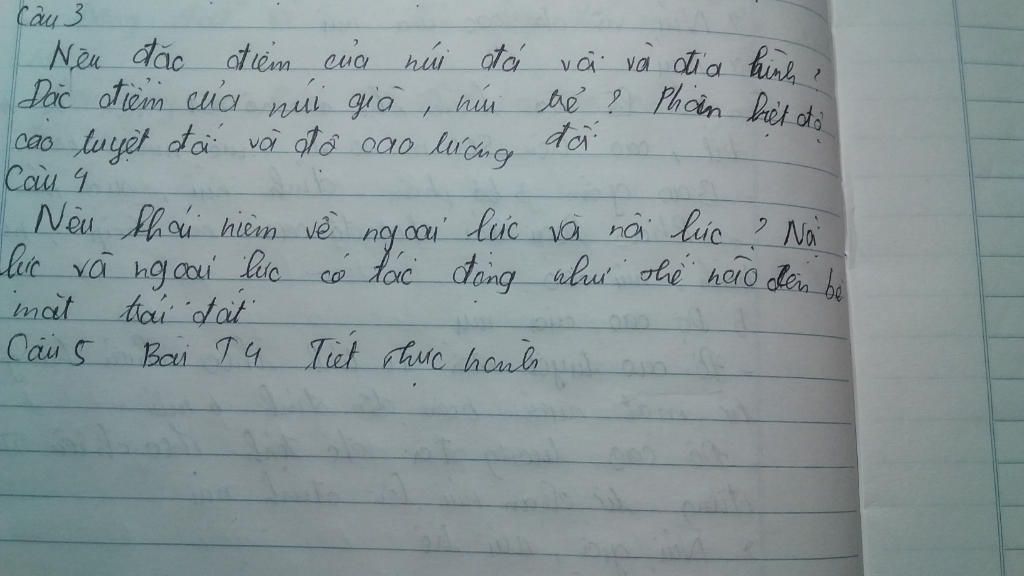 Câu 3
Nêu đặc điểm của núi đá vôi và địa hình?
Đặc điểm của núi già, núi trẻ? Phân biệt độ
cao tuyệt đối và độ cao tương đối
Câu 4
Nêu khái niệm về ngoại lực và nội lực? Nội
lực và ngoại lực có tác động như thế nào đến bề
mặt trái đất
Câu 5 Bài T4 Tiết thực hành